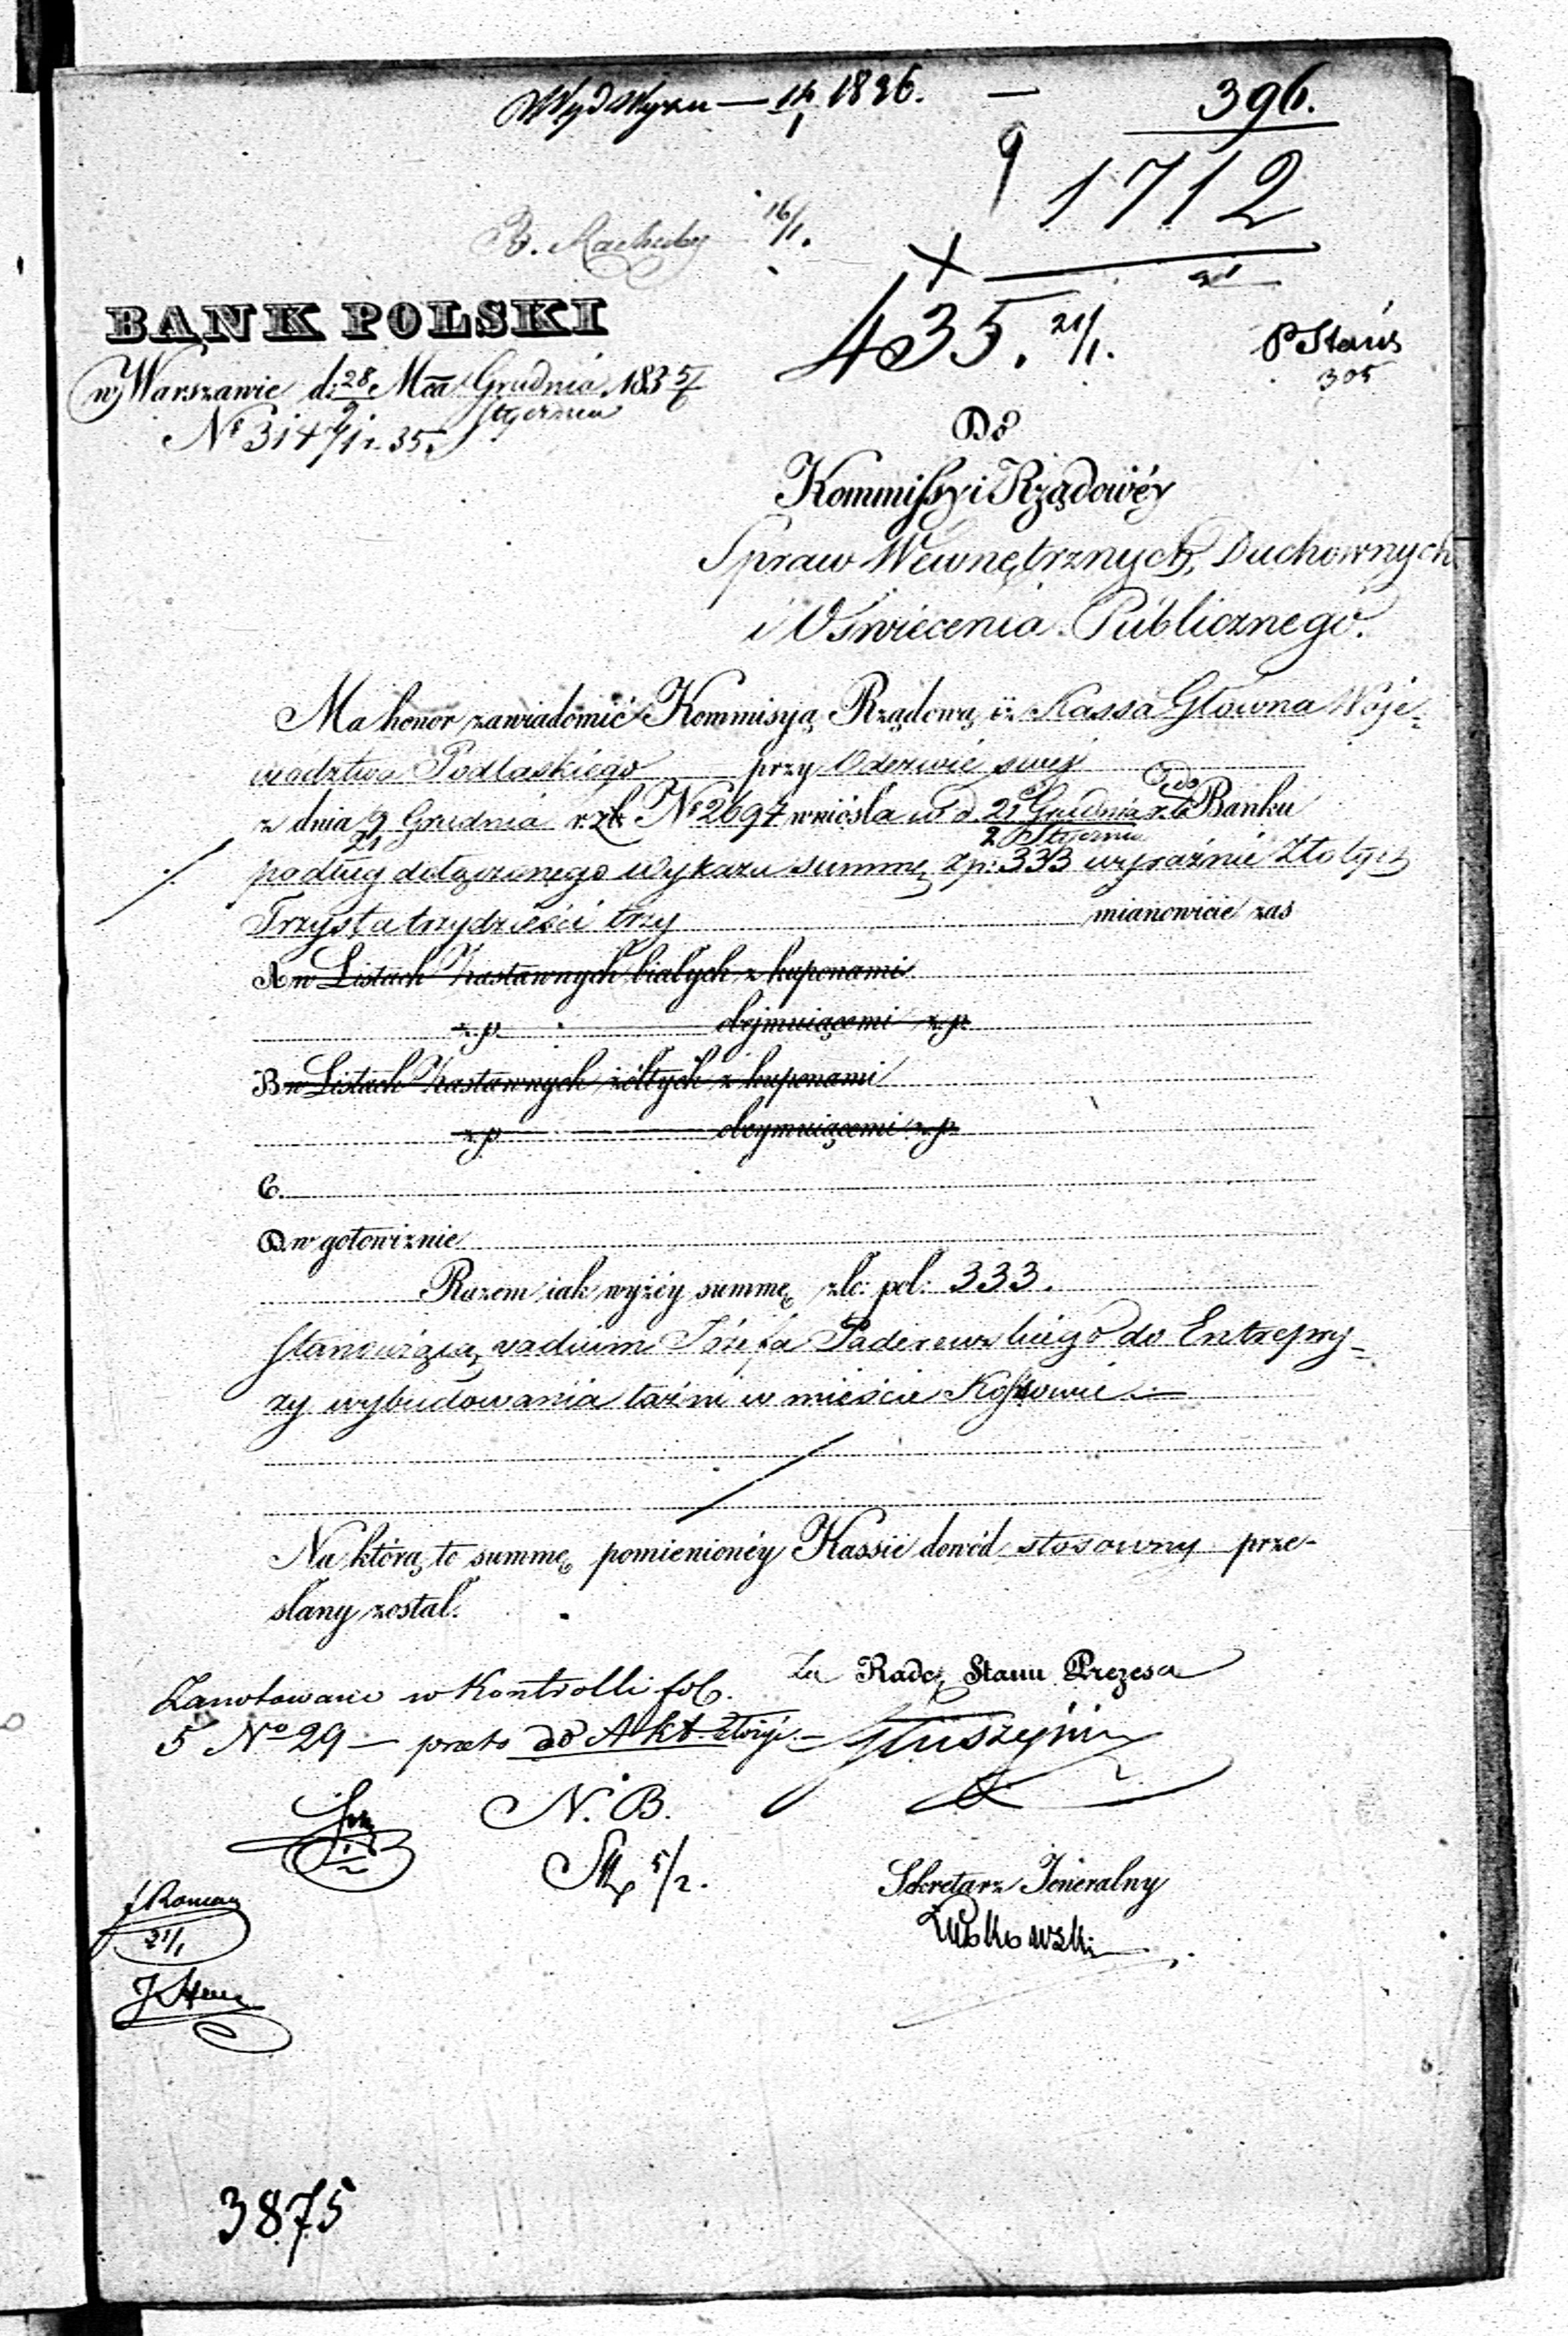 1836. — 396.
9 1712
16/1.
435. 21/1.
BANK POLSKI
P Stanis
305
w Warszawie d: 28 Mca Grudnia 1835/6
9 Stycznia
Nr 31471 r. 35.
Do
Kommissyi Rządowéy
Spraw Wewnętrznych, Duchownych
i Oświecenia Publicznego.
Ma honor zawiadomić Kommisyą Rządową iż Kassa Główna Woje-
wództwa Podlaskiego przy Odezwie swej
z dnia 9/21 Grudnia r. z. No 2697 wniosła w d. 21 Grudnia r. b. do Banku
2 Stycznia
podług dołączonego wykazu summę zp: 333 wyraźnie Złotych
Trzysta trzydzieści trzy mianowicie zaś
A w Listach Zastawnych białych z kuponami
z.p. obejmuiącemi z.p.
B w Listach Zastawnych żółtych z kuponami
z.p. obeymuiącemi z.p.
C.
D. w gotowiznie
Razem iak wyżéy summę złt: pol: 333.
Stanowiącą vadium Józefa Paderewskiego do Entrepry-
zy wybudowania łaźni w mieście Kossowie
Na którą to summę pomienionéy Kassie dowód stosowny prze-
słany został.
Za Radcę Stanu Prezesa
Zanotowano w Kontrolli fol.
5 No 29 — przeto do Akt.
N. B.
5/2.
Sekretarz Jeneralny
21/1
3875